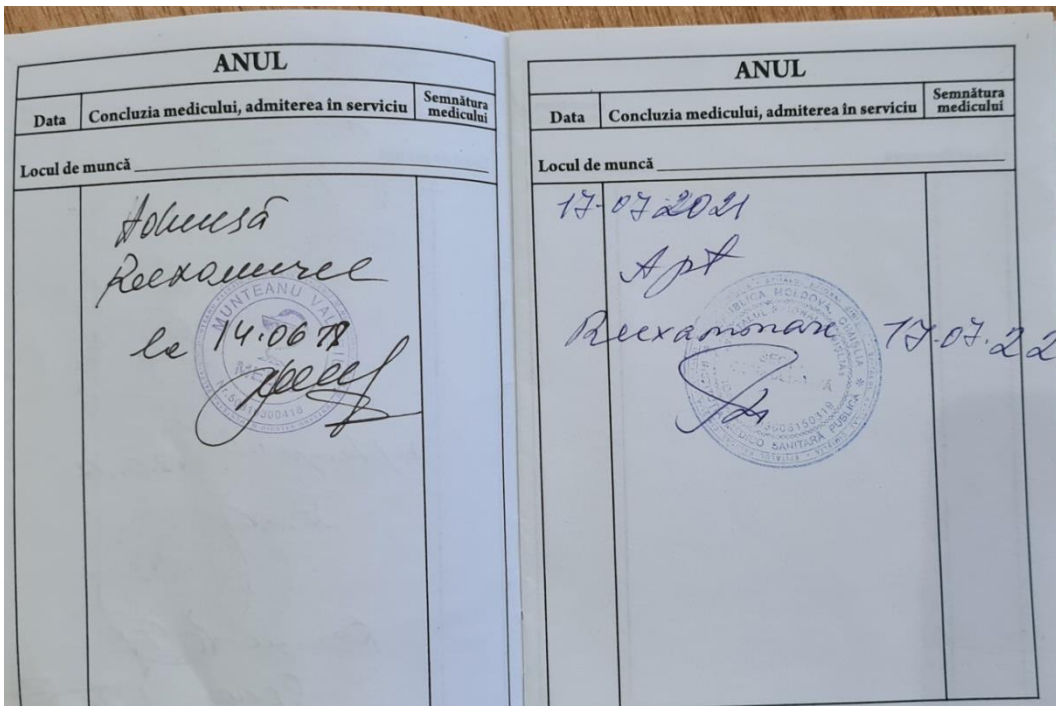 ANUL
Data Concluzia medicului, admiterea în serviciu Semnătura medicului
Locul de muncă
Admisă
Reexamenare
la 14.06
MUNTEANU VAL
ANUL
Data Concluzia medicului, admiterea în serviciu Semnătura medicului
Locul de muncă
17.07.2021
Apt
Reexaminare 17.07.22
REPUBLICA MOLDOVA
MEDICO SANITARĂ PUBLICĂ